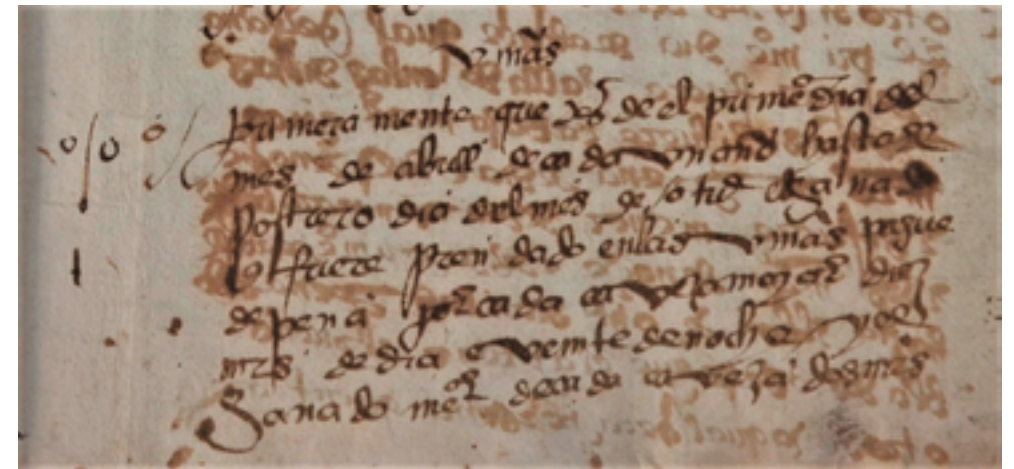 viñas
primera mente que desde el primero dia del
mes de abrill de cada un año hasta el
postrero dia del mes de otubre el ganado
que fuere prendado en las viñas pague
de pena por cada caveça mayor diez
mrs de dia e veinte de noche y del
ganado menor de cada caveça dos mrs